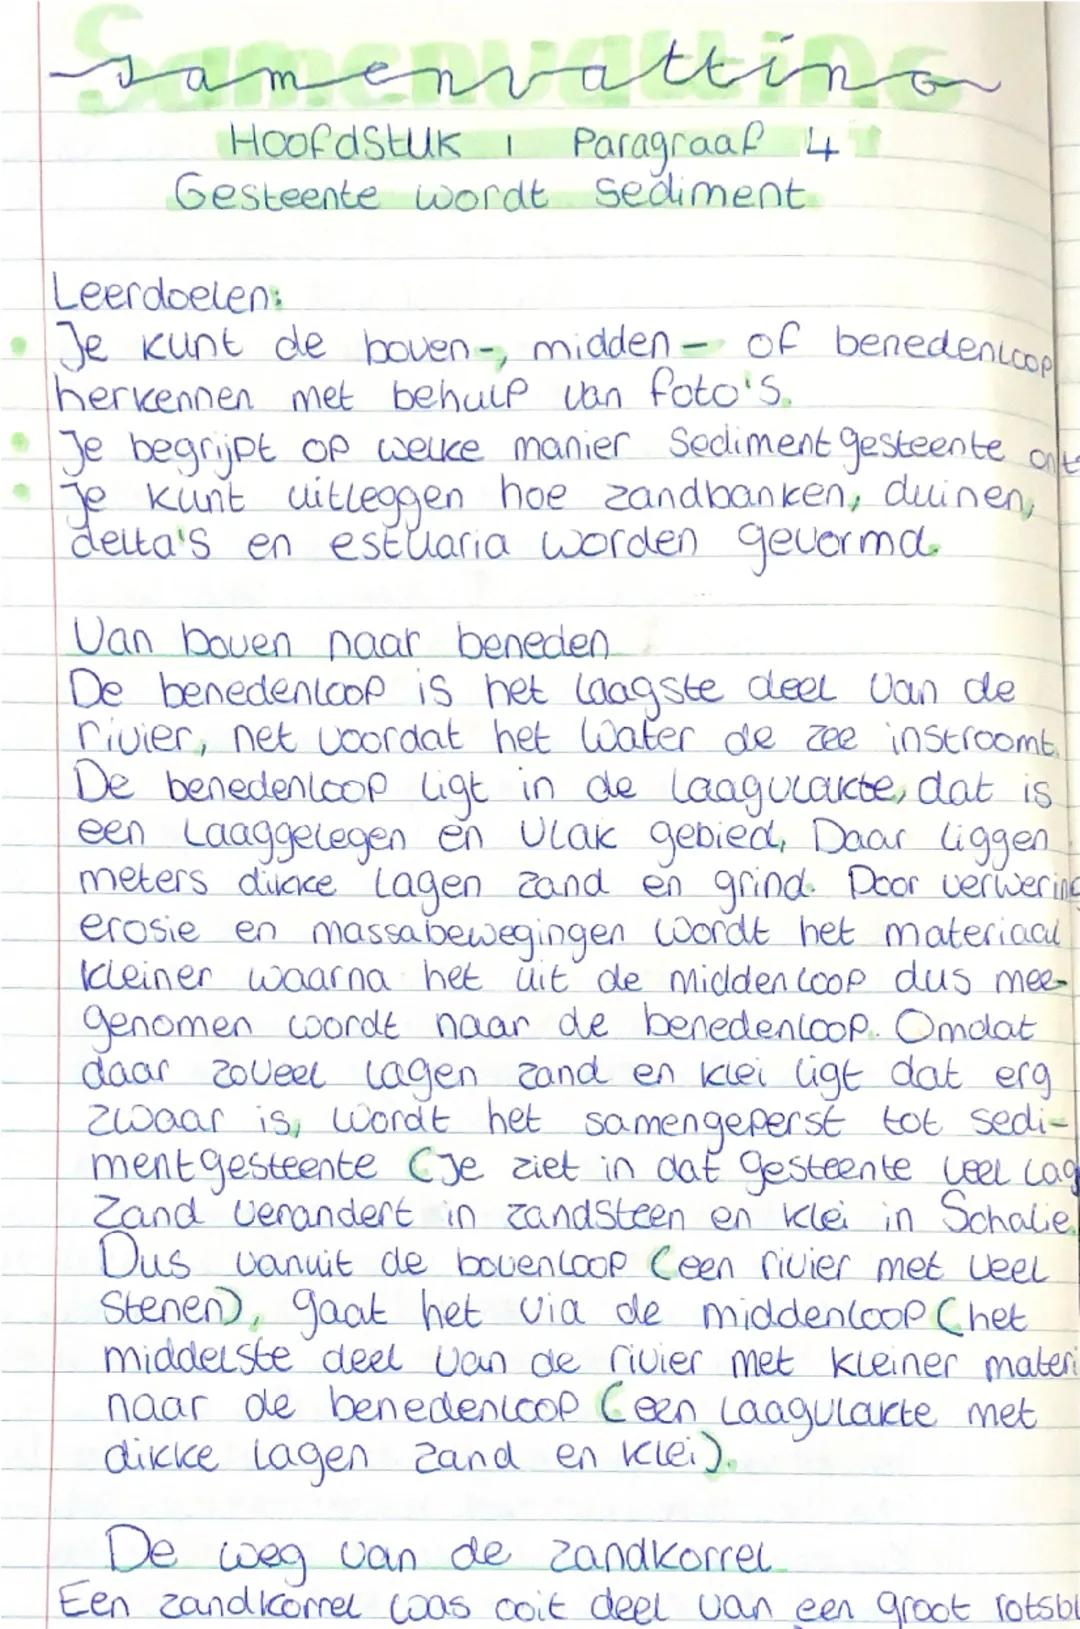 Samenvatting
Hoofdstuk 1 Paragraaf 4
Gesteente wordt sediment
Leerdoelen:
Je kunt de boven-, midden- of benedenloop
herkennen met behulp van foto's.
Je begrijpt op welke manier Sedimentgesteente
Je kunt uitleggen hoe zandbanken, duinen,
delta's en estuaria worden gevormd.
Van boven naar beneden
De benedenloop is het laagste deel van de
rivier, net voordat het water de zee instroomt.
De benedenloop ligt in de laagvlakte, dat is
een laaggelegen en vlak gebied, Daar liggen
meters dikke lagen zand en grind. Door verwering
erosie en massabewegingen wordt het materiaal
kleiner waarna het uit de middenloop dus mee-
genomen wordt naar de benedenloop. Omdat
daar zoveel lagen zand en klei ligt dat erg
zwaar is, wordt het samengeperst tot sedi-
mentgesteente (Je ziet in dat gesteente veel lag
Zand verandert in zandsteen en klei in Schalie.
Dus vanuit de bovenloop (een rivier met veel
stenen), gaat het via de middenloop (het
middelste deel van de rivier met kleiner materi
naar de benedenloop (een laagvlakte met
dikke lagen zand en klei).
De weg van de zandkorrel
Een zandkorrel was ooit deel van een groot rotsbl